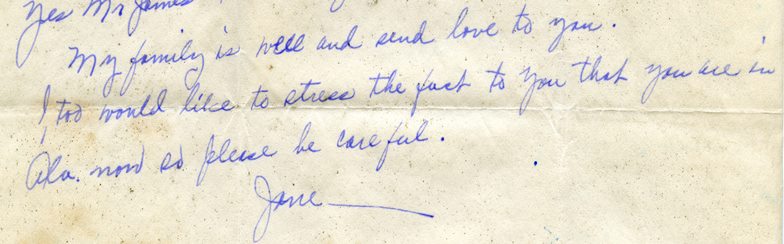 Yes Mr James
My family is well and send love to you.
I, too would like to stress the fact to you that you are in
Ala. now so please be careful.
Jane